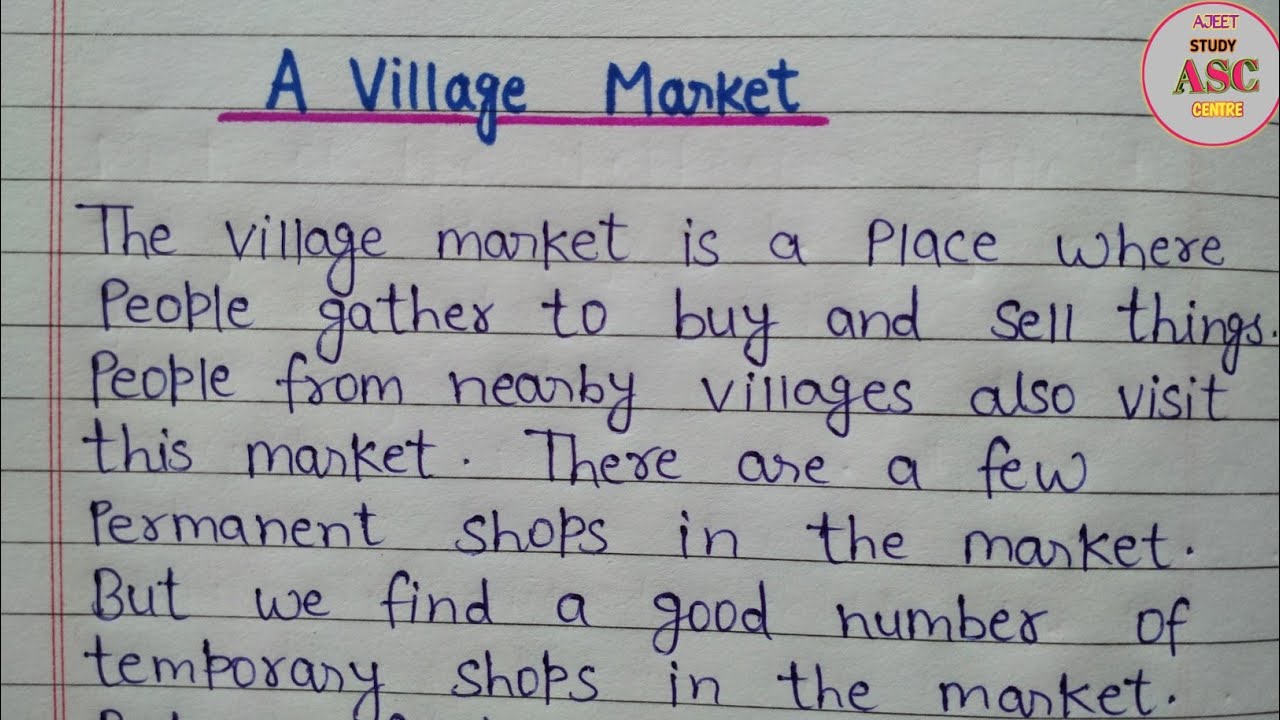 AJEET
STUDY
ASC
CENTRE
A Village Market
The village market is a Place where
People gather to buy and sell things.
People from nearby villages also visit
this market. There are a few
Permanent shops in the market.
But we find a good number of
temporary shops in the market.